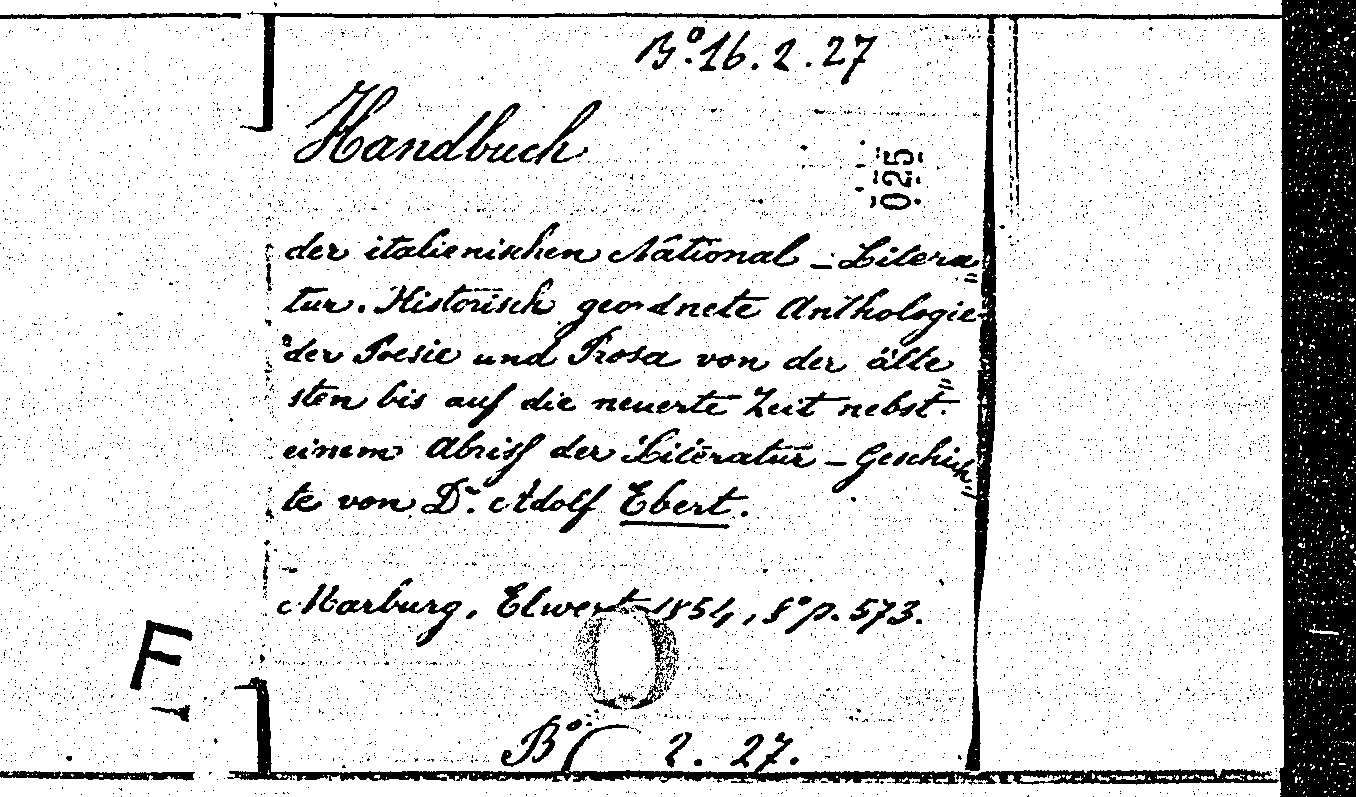 B° 16.2.27
Handbuch
025
der italienischen National-Litera=
tur. Historisch geordnete Anthologie
der Poesie und Prosa von der älte=
sten bis auf die neuerte Zeit nebst
einem Abriss der Literatur-Geschich=
te von Dr. Adolf Ebert.
Marburg, Elwert 1854, 8° p. 573.
F
B° 2. 27.